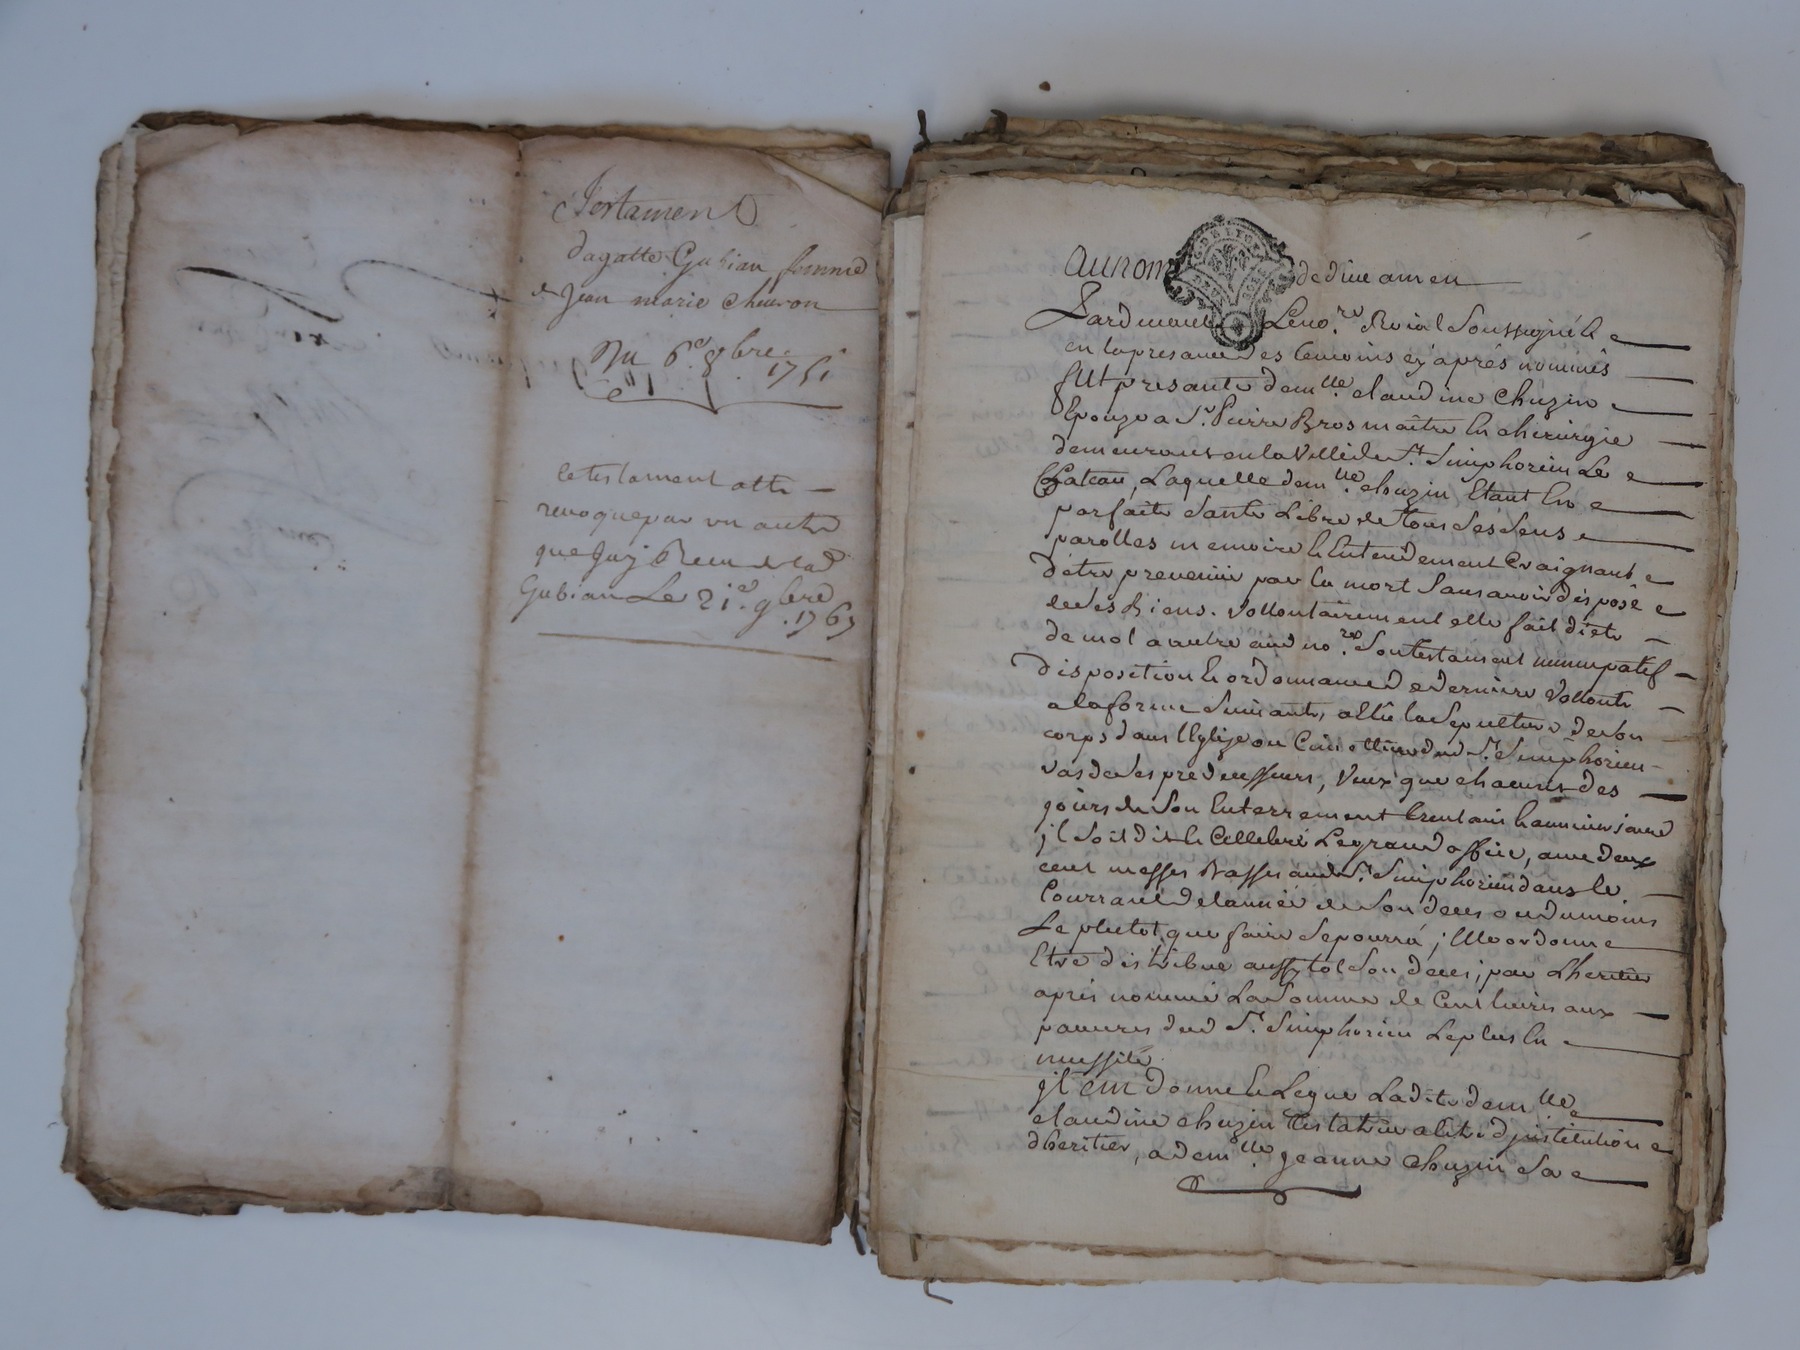 Testament
dagatte Gubian femme
de Jean marie Cheuron
Du 6e 8bre 1751
le testament atté
revoqué par un autre
que Jay Receu de lad
Gubian Le 21e 9bre 1767
Au nom de dieu amen
Pardevant Le no.re Roial Soussigné &
en la presance des temoins cy aprés nommés
fUt presante dem.lle claudine Chuzin
Epouze a Sr. Pierre Bros maître En chirurgie
demeurant en la Ville de St. Simphorien Le
Chateau, Laquelle dem.lle chuzin Etant En
parfaite Santé Libre de tous Ses Sens
parolles memoire & Entendement Craignant
d'étre prevenüe par la mort Sans avoir disposé
de Ses Biens. Vollontairement elle fait dicte
de mot a autre aud no.re Son testament nuncupatif
disposition & ordonnance de derniere Vollonté
a la forme Suivante, a Elû la Sepulture de Son
corps dans l'Eglize ou Cimettiere dud St. Simphorien
Vas de Ses predecesseurs, Veux que chacuns des
jours de Son Enterrement trentain & anniversaire
jl Soit dit & Cellebré Le grand office, avec deux
cent messes Basses aud St. Simphorien dans le
Courrant de l'année de Son deces ou du moins
Le plutot que faire Se pourra; Elle ordonne
Etre distribué aussytot Son deces, par L'heritier
aprés nommé La Somme de Cent livres aux
pauvres dud St. Simphorien Le plus En
necessité.
jtem donne & Legue Ladite dem.lle
claudine chuzin testatrice a titre d'jnstitution
d'heritier, a dem.lle jeanne Chuzin Sa